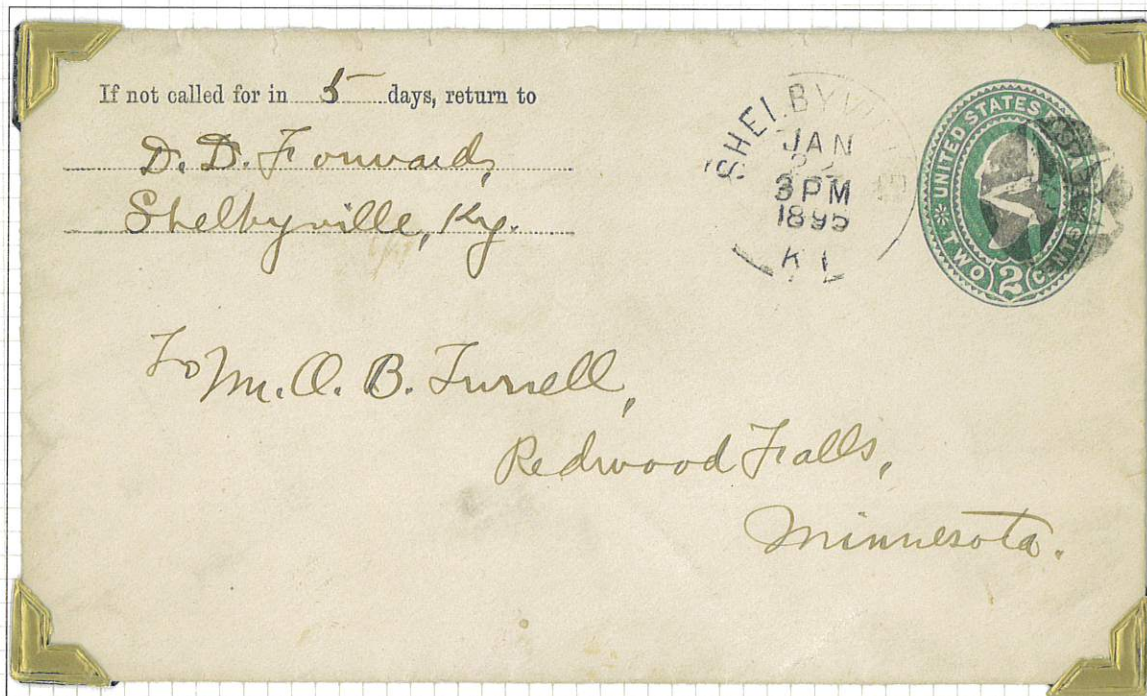 If not called for in 5 days, return to
D. D. Forwards,
Shelbyville, Ky.
SHELBYV
JAN
3 PM
1895
KY
UNITED STATES
TWO 2 CENTS
To M. O. B. Turrell,
Redwood Falls,
Minnesota.